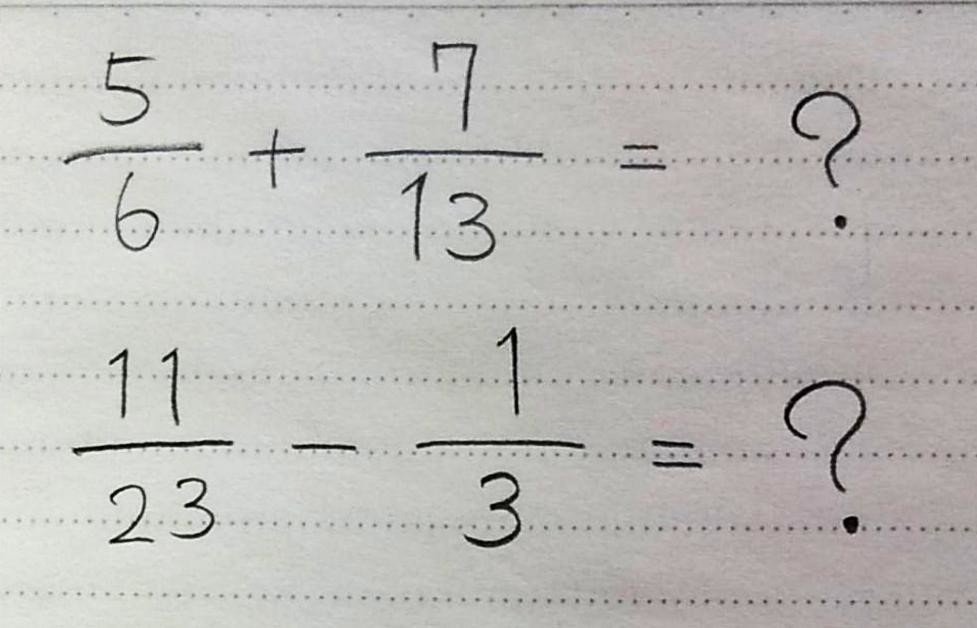 5/6 + 7/13 = ?
11/23 - 1/3 = ?